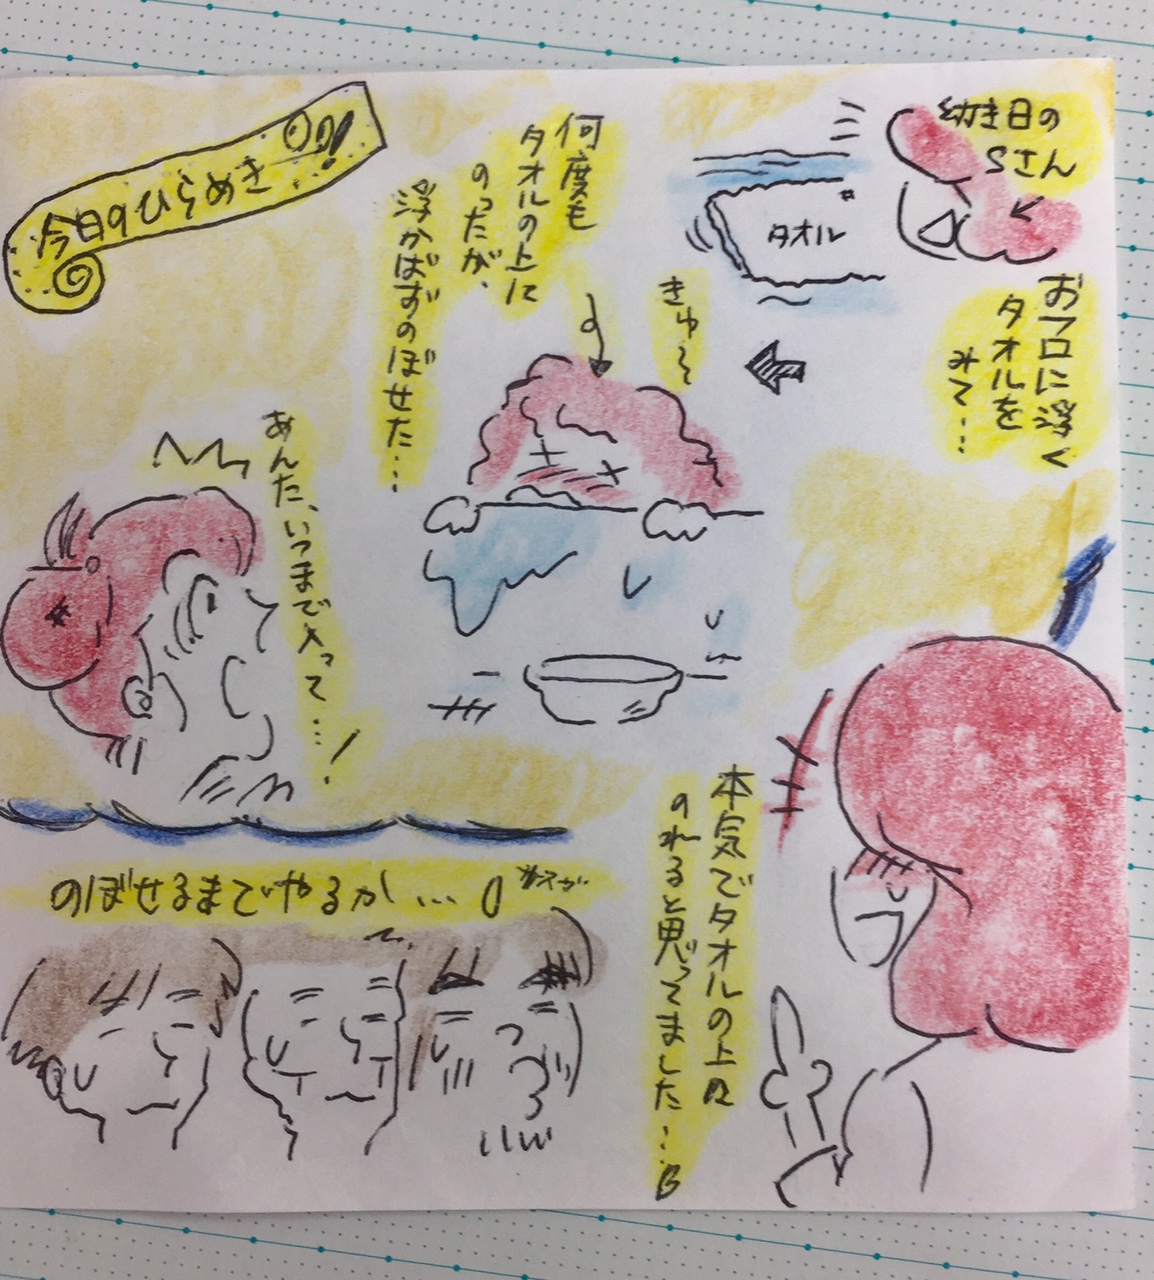 今日のひらめき
幼き日の
Sさん
タオル
お フロに浮く
タオルを
みて…
きゅ〜
何度も
タオルの上に
のったが、
浮かばずのぼせた…
あんた、いつまで入って…!
本気でタオルの上に
のれると思ってました…
のぼせるまでやるか…